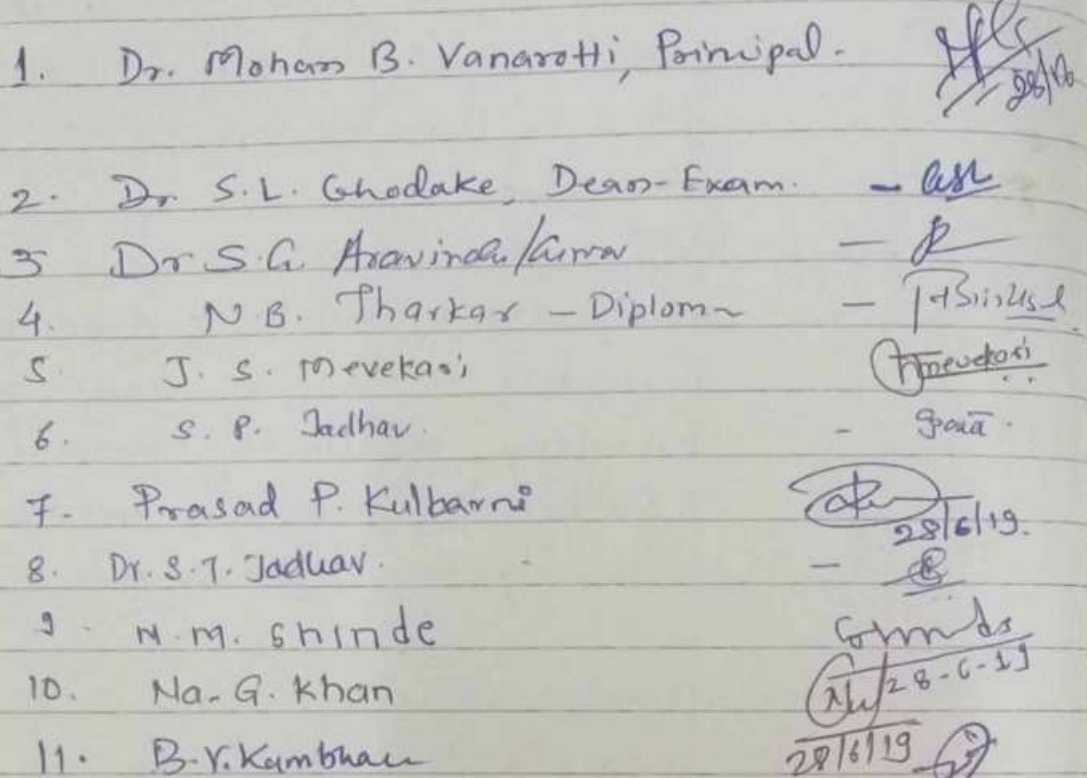 1. Dr. Mohan B. Vanarotti, Principal.
28/06
2. Dr. S.L. Ghodake, Dean-Exam. -
3 Dr S.G. Aravindakumar -
4. N B. Tharkar - Diploma -
5. J. S. Mevekari Jmevekari
6. S. P. Jadhav. -
7. Prasad P. Kulkarni
28/6/19.
8. Dr. S.T. Jadhav. -
9. M. M. Shinde
10. Na. G. Khan 28-6-19
11. B.V. Kambhar 28/6/19